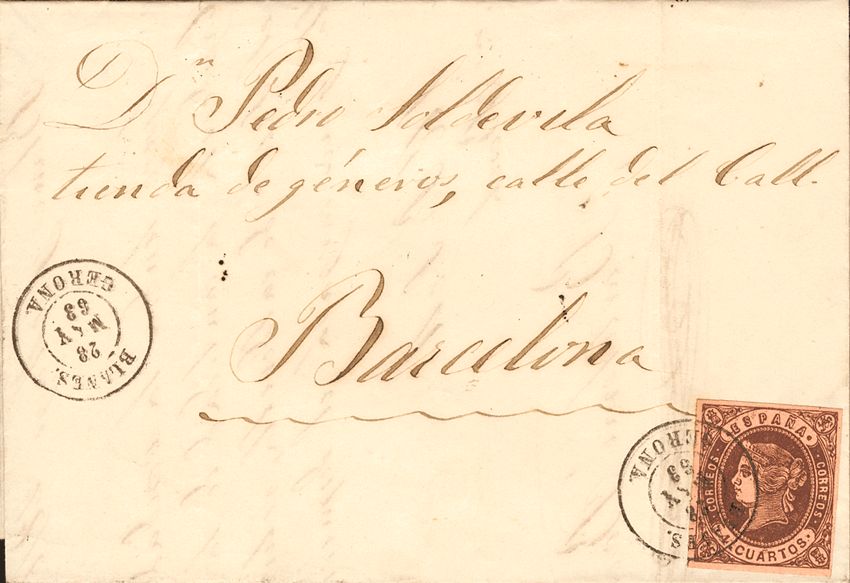 Dn Pedro Soldevila
tienda de géneros, calle del Call.
Barcelona
BLANES.
28
MAY
63
GERONA
ESPAÑA
CORREOS
CORREOS
4 CUARTOS.
GERONA
63